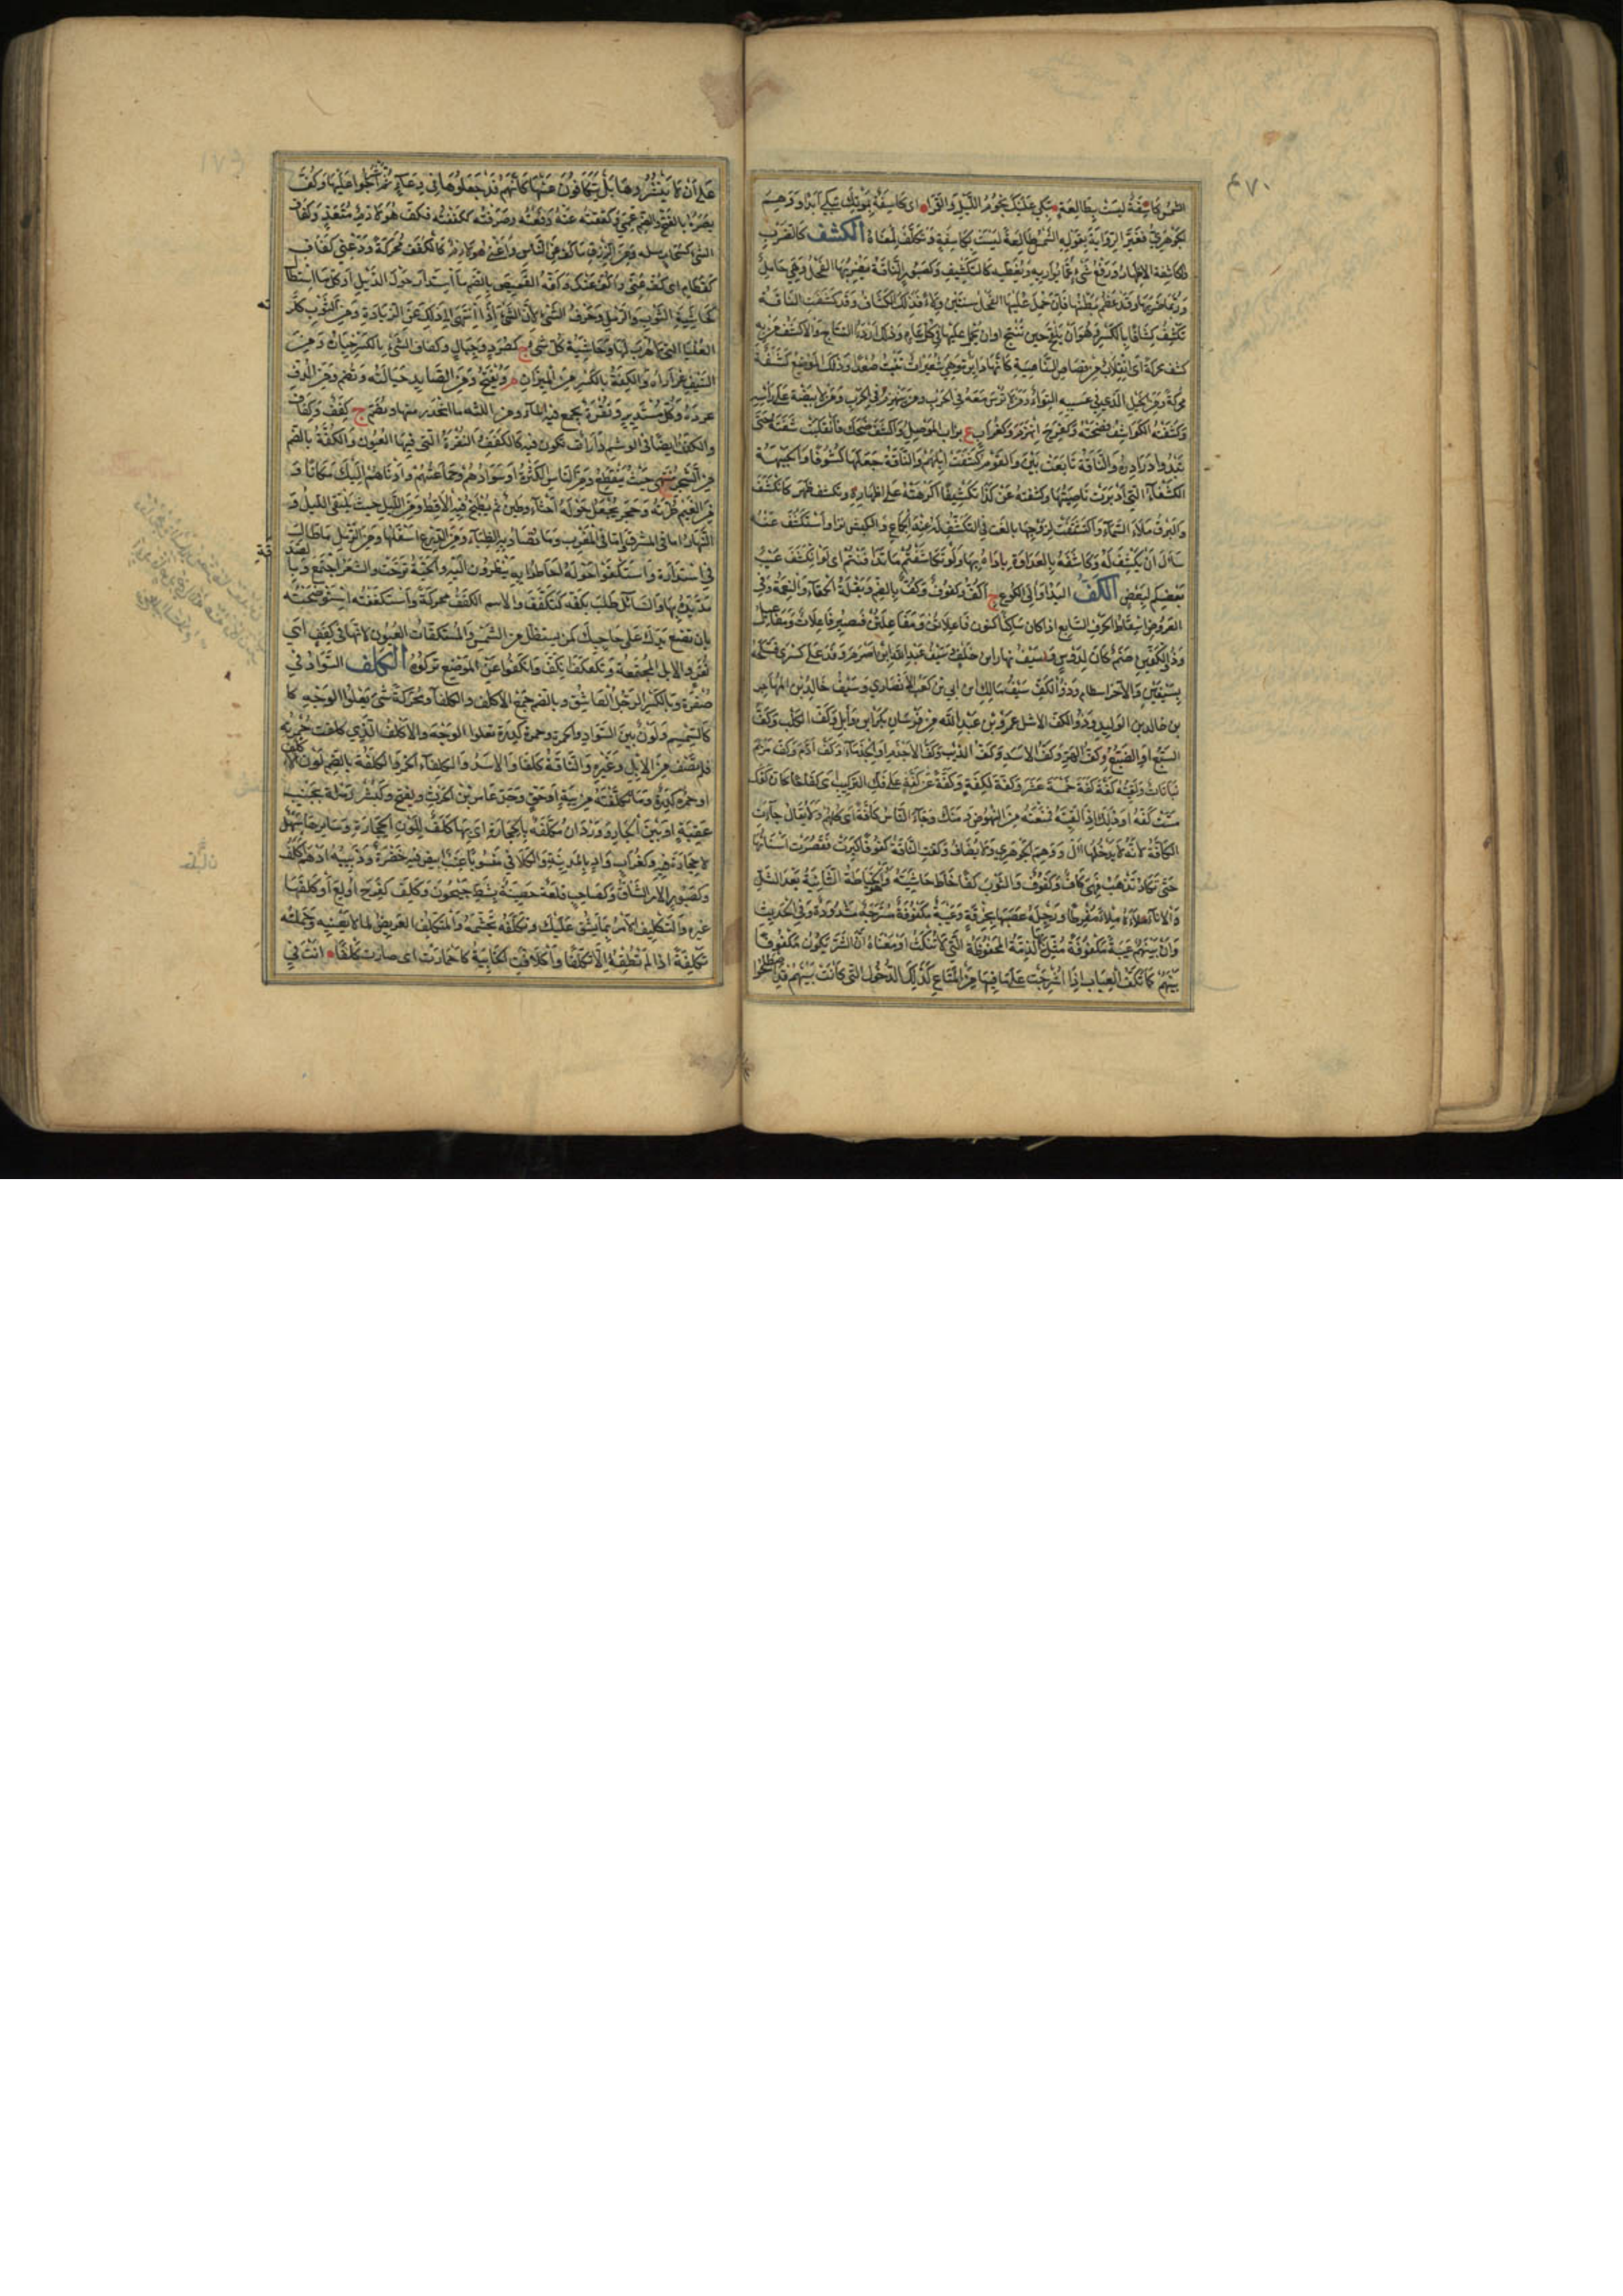 ٤٧٠
الشمس كاسفة ليست بطالعة تبكي عليك نجوم الليل والقمرا اى كاسفة لموتك تبكي أبدا ووهم
الجوهري فغير الرواية بقوله الشمس طالعة ليست بكاسفة وتكلف لمعناه الكشف كالضرب
والكاشفة الاظهار ورفع شيء عما يواريه ويغطيه كالتكشيف وكصبور الناقة يضربها الفحل وهي حامل
وربما ضربها وقد عظم بطنها فان حمل عليها الفحل سنتين ولاء فذلك الكشاف وقد كشفت الناقة
تكشف كشافا بالكسر وهو أن يلقح حين تنتج اوان يحمل عليها في كل عام وذلك اردء النتاج والاكشف من به
كشف محركة اى انقلاب من قصاص الناصية كانها دايرة وهي شعيرات تنبت صعدا وذلك الموضع كشفة
محركة ومن الخيل الذي في عسيبه التواء ومن لا ترس معه في الحرب ومن ينهزم في الحرب ومن لا بيضة على راسه
وكشفته الكواشف فضحته وكفرح انهزم وكغراب ع بزاب الموصل واكشف ضحك فانقلبت شفته حتى
تبدو درادره والناقة تابعت بين والقوم كشفت ابلهم والناقة جعلها كشوفا والجبهة
الكشفاء التي أدبرت ناصيتها وكشفته عن كذا تكشيفا اكرهته على اظهاره وتكشف ظهر كانكشف
والبرق ملأ السماء واكتشفت لزوجها بالغت في التكشف له عند الجماع والكبش نزا واستكشف عنه
سأل ان يكشف له وكاشفه بالعداوة باداه بها ولو تكاشفتم ما تدافنتم اى لو انكشف عيب
بعضكم لبعض الكف اليد أو الى الكوع ج أكف وكفوف وكف بالضم وبقلة الحمقاء والنعمة وفي
العروض اسقاط الحرف السابع اذا كان ساكنا كنون فاعلاتن ومفاعيلن فيصير فاعلات ومفاعيل
وذو الكفين صنم كان لدوس وسيف نهار ابن خلف وسيف عبد الله ابن اصرم وفد على كسرى فسلحه
بسيفين والآخر اسطام وذو الكف سيف مالك ابن ابي بن كعب الانصاري وسيف خالد بن المهاجر
بن خالد بن الوليد وذو الكف الاشل عمرو بن عبد الله من فرسان بكر ابن وايل وكف الكلب وكف
السبع أو الضبع وكف الهر وكف الاسد وكف الذئب وكف الاجذم او الجذماء وكف آدم وكف مريم
نباتات ولقيته كفة كفة خمسة عشر وكفة لكفة وكفة عن كفة على فك التركيب اى كفاحا كان كفك
مست كفه او ذلك اذا لقيته فمنعته من النهوض ومنعك وجاء الناس كافة اى كلهم ولا يقال جاءت
الكافة لانه لا يدخلها ال ووهم الجوهري ولا يضاف وكفت الناقة كفوفا كبرت فقصرت اسنانها
حتى تكاد تذهب فهي كاف وكفوف والثوب كفا خاط حاشيته وهو الخياطة الثانية بعد الشل
والاناء ملاه ملا مفرطا ورجله عصبها بخرقة وعيبة مكفوفة مشرجة مشدودة وفي الحديث
وان بيننم عيبة مكفوفة مثل بها الذمة المحفوظة التي لا تنكث او معناه أن الشر يكون مكفوفا
بينهم كما تكف العياب اذا اشرجت على ما فيها من المتاع كذلك الذحول التي كانت بينهم قد اصطلحوا
على أن لا ينشروها بل يتكافون عنها كأنهم قد جعلوها في وعاء ثم أشرجوا عليها وكف
بصره بالفتح والضم عمي وكففته عنه دفعته وصرفته ككفكفته فكف هو لازم متعد وكفاف
الشئ كسحاب مثله ومن الرزق ما كف عن الناس واغنى كالكفف محركة ودعني كفاف
كقطام اى كف عني واكف عنك وكفة القميص بالضم ما استدار حول الذيل او كل ما استطال
كحاشية الثوب والرمل وحرف الشئ لأن الشئ اذا انتهى الى ذلك كف عن الزيادة ومن الثوب طرته
العليا التي لا هدب لها وحاشية كل شى ج كصرد وجبال وكفاف الشئ بالكسر حياره ومن
السيف غراره والكفة بالكسر من الميزان م ويفتح ومن الصايد حبالته ويضم ومن الدف
عوده وكل مستدير ونقرة يجمع فيها الماء ومن اللثه ما انحدر منها ويضم ج كفف وكفاف
والكفف ايضا في الوشم دارات تكون فيه كالكفف النقرة التي فيها العيون والكفة بالضم
من الشجر منتهى حيث ينقطع ومن الناس الكثرة او سوادهم وجماعتهم واوناهم اليك مكانا و
من الغيم طرته وحجر يجعل حوله أخثاء وطين ثم يطبخ فيه الأقط ومن الليل حيث يلتقى الليل و
النهار اما في المشرق واما في المغرب وما تصاد به الظباء ومن الدرع اسفلها ومن الرمل ما طال
في استدارة واستكفوا حوله احاطوا به ينظرون اليه والحية ترحت والشعر اجتمع وبالصدقة
مد يده بها والسائل طلب بكفه كتكفف والاسم الكفف محركة واستكففته استوضحته
بان تضع يدك على حاجبك كمن يستظل من الشمس والمستكفات العيون لانها في كفف اى
نقر والابل المجتمعة وتكفكف انكف وانكفوا عن الموضع تركوه الكلف السواد في
صفرة وبالكسر الرجل العاشق وبالضم جمع الاكلف والكلفاء ومحركة شىء يعلو الوجه كا
كالسمسم ولون بين السواد والحمرة وحمرة كدرة تعلو الوجه والاكلف الذي كلفت حمرته
فلم تصف من الابل وغيره والناقة كلفا والاسد والكلفاء الخمر والكلفة بالضم لون الاكلف
او حمرة كدرة وما تكلفته من نايبة او حق
وكصبور الامر الشاق وكصاحب قلعة حصينة بشط جيحون وكلف كفرح اولع واكلفه
غيره والتكليف الامر بما يشق عليك وتكلفه تجشمه والمتكلف العريض لما لا يعنيه وحملته
تكلفة اذا لم تطقه الا تكلفا واكلافت الخابية كاحمارت اى صارت كلفا انت في